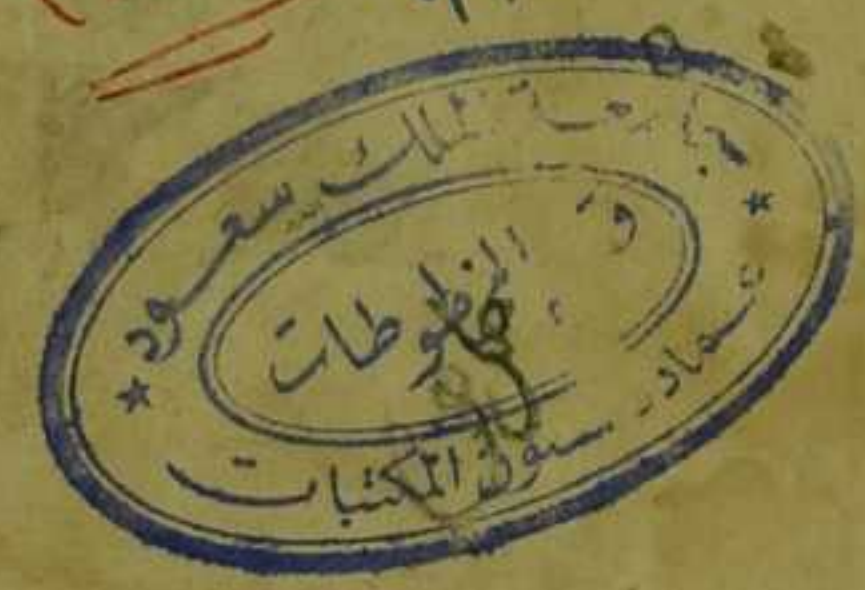 جامعة الملك سعود
المخطوطات
عمادة شؤون المكتبات